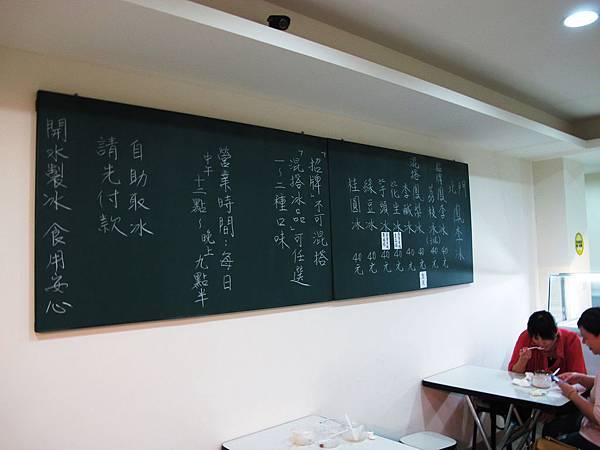 北門鳳李冰
招牌鳳李冰 40元
荔枝冰 40元
混搭鳳梨冰 40元
李鹹冰 40元
花豆冰 40元
芋頭冰 40元
綠豆冰 40元
桂圓冰 40元
「招牌」不可混搭
「混搭冰品」可任選
一～二種口味
營業時間：每日
中午十二點～晚上九點半
自助取冰
請先付款
開水製冰 食用安心